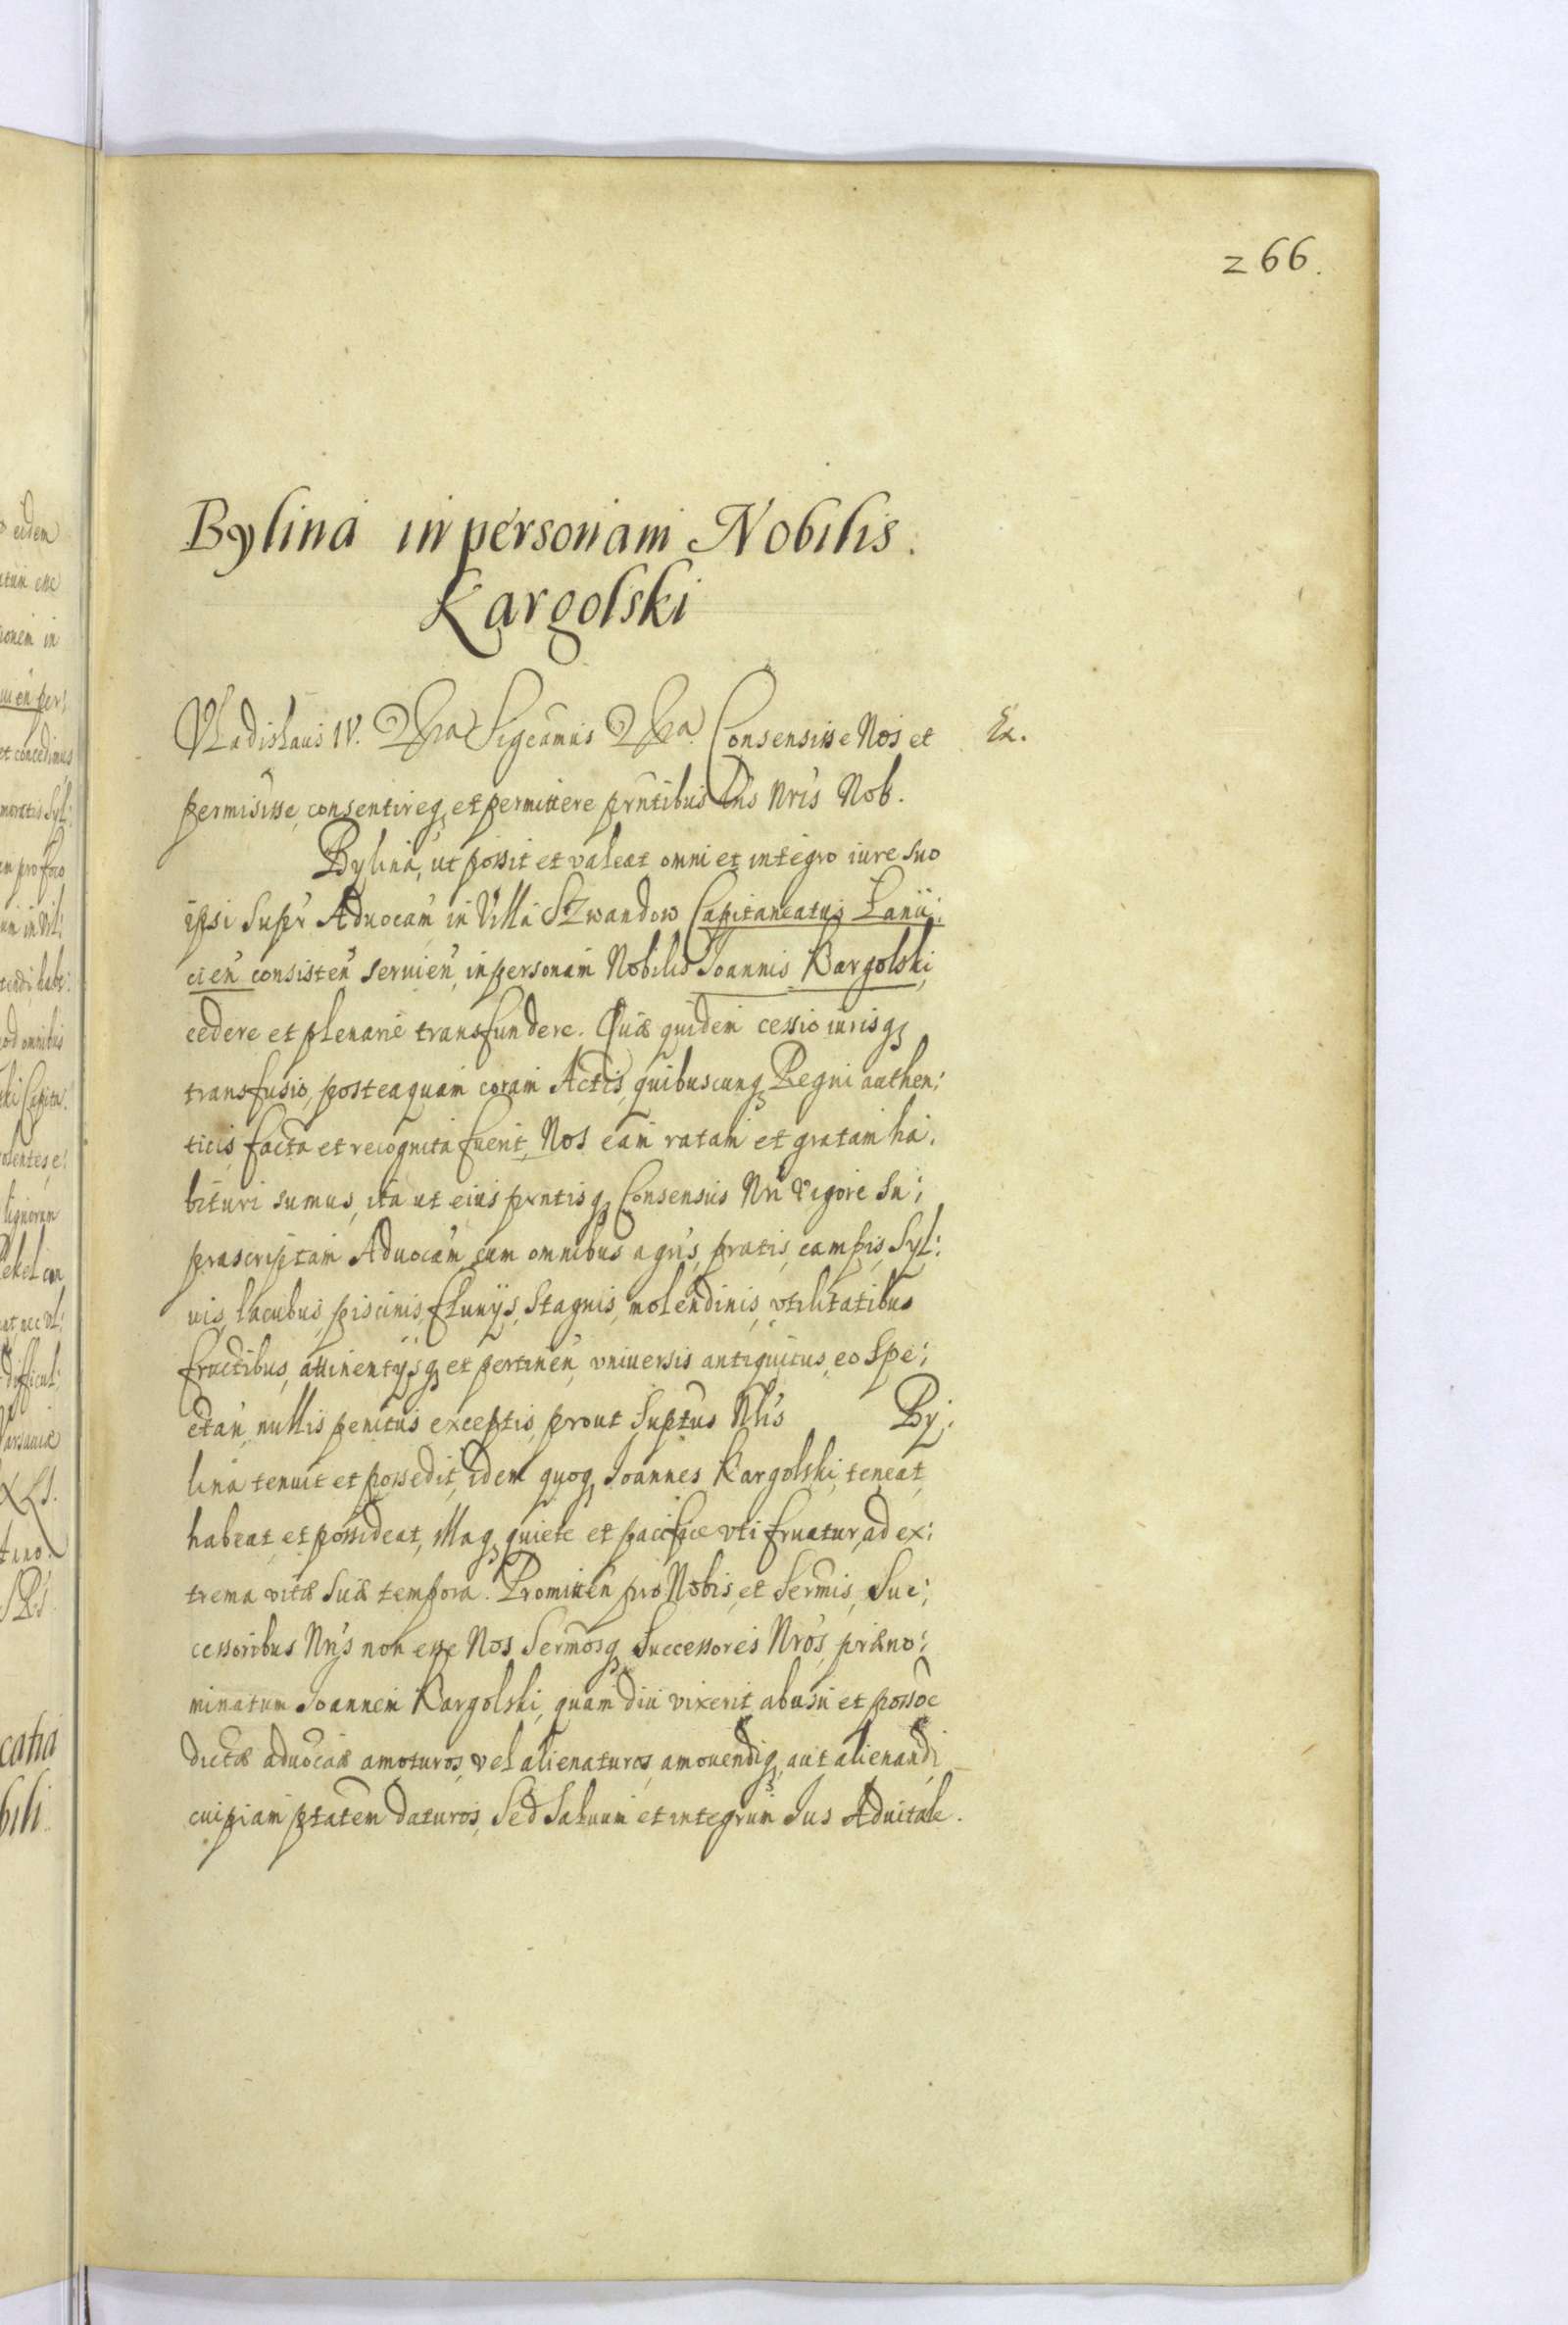 266.
Bylina in personam Nobilis.
Kargolski
Vladislaus IV. Sigcamus Consensisse Nos et Ex.
permisisse, consentireq₃ et permittere prntibus Lris Nris Nob.
Bylina, ut possit et valeat omni et integro iure suo
ipsi Supr Aduocam in Villa Szwandow Capitaneatus Lanii:
cien consisten seruien, in personam Nobilis Joannis Kargolski,
cedere et plenarie transfundere. Quæ quidem cessio iurisq₃
transfusio, posteaquam coram Actis, quibuscunq₃ Regni authen:
ticis facta et recognita fuerit, Nos eam ratam et gratam ha:
bituri sumus, ita ut eius prntisq₃ Consensus Nri vigore Su:
prascriptam Aduocam, cum omnibus agris, pratis, campis, Syl:
uis, lacubus, piscinis, fluuijs, Stagnis, molendinis, vtilitatibus
fructibus, attinentijsq₃ et pertinen, vniuersis antiquitus, eo Spe:
ctan, nullis penitus exceptis, prout Suptus Nlis By:
lina tenuit et possedit, idem quoq₃ Joannes Kargolski, teneat,
habeat, et possideat, illaq₃ quiete et pacifice vti fruatur, ad ex:
trema vitæ suæ tempora. Promitten pro Nobis, et Sermis, Suc:
cessoribus Nris non esse Nos, Sermosq₃ Successores Nros, præno:
minatum Joannem Kargolski, quam diu vixerit ab usu et possoe
dictæ aduocaæ amoturos, vel alienaturos, amouendiq₃, aut alienandi
cuipiam ptatem daturos, Sed Saluum et integrum Jus Aduitale.